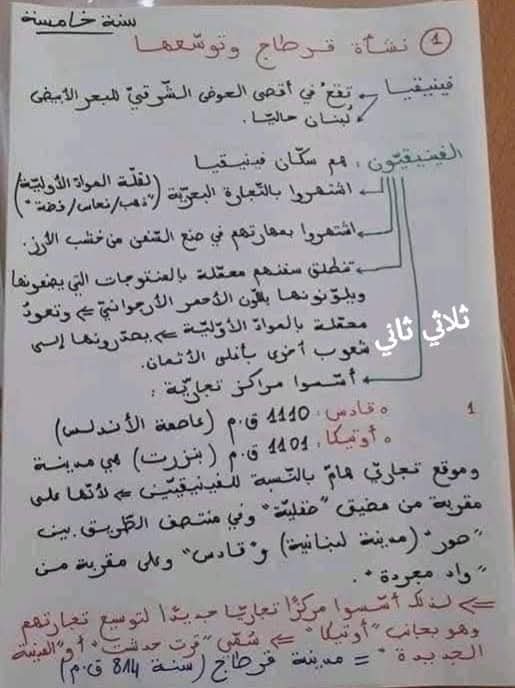 سنة خامسة
① نشأة قرطاج وتوسّعها
فينيقيا
تقع في أقصى الحوض الشّرقيّ للبحر الأبيض
لُبنان حاليّا.
الفينيقيّون: هم سكّان فينيقيا
اشتهروا بالتّجارة البحريّة (لقلّة الموادّ الأوليّة
"ذهب/نحاس/فضة")
اشتهروا بمهارتهم في صنع السّفن من خشب الأرز.
تنطلق سفنهم محمّلة بالمنتوجات التي يصنعونها
ويلوّنونها باللّون الأحمر الأرجوانيّ ⇐ وتعود
محمّلة بالموادّ الأوّليّة ⇐ يصدّرونها إلى
شعوب أخرى بأغلى الأثمان.
ثلاثي ثاني
أسّسوا مراكز تجاريّة:
قادس: 1110 ق.م (عاصمة الأندلس)
1
أوتيكا: 1101 ق.م (بنزرت) هي مدينة
وموقع تجاريّ هامّ بالنّسبة للفينيقيّين ⇐ لأنّها على
مقربة من مضيق "صقليّة" وفي منتصف الطّريق بين
"صور" (مدينة لبنانية) و"قادس" وعلى مقربة من
"واد مجردة".
⇐ لذلك أسّسوا مركزًا تجاريّا جديدًا لتوسيع تجارتهم
وهو بجانب "أوتيكا" ⇐ سُمّي "قرت حدشت" أو "المدينة
الجديدة" = مدينة قرطاج (سنة 814 ق.م)